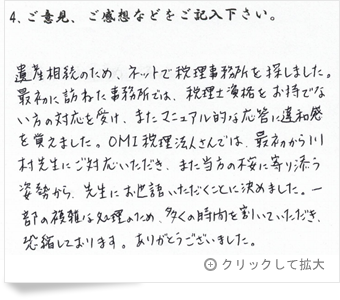 4. ご意見、ご感想などをご記入下さい。
遺産相続のため、ネットで税理事務所を探しました。
最初に訪ねた事務所では、税理士資格をお持でな
い方の対応を受け、またマニュアル的な応答に違和感
を覚えました。OMI税理法人さんでは、最初から川
村先生にご対応いただき、また当方の不安に寄り添う
姿勢から、先生にお世話いただくことに決めました。一
部の複雑な処理のため、多くの時間を割いていただき、
恐縮しております。ありがとうございました。
クリックして拡大